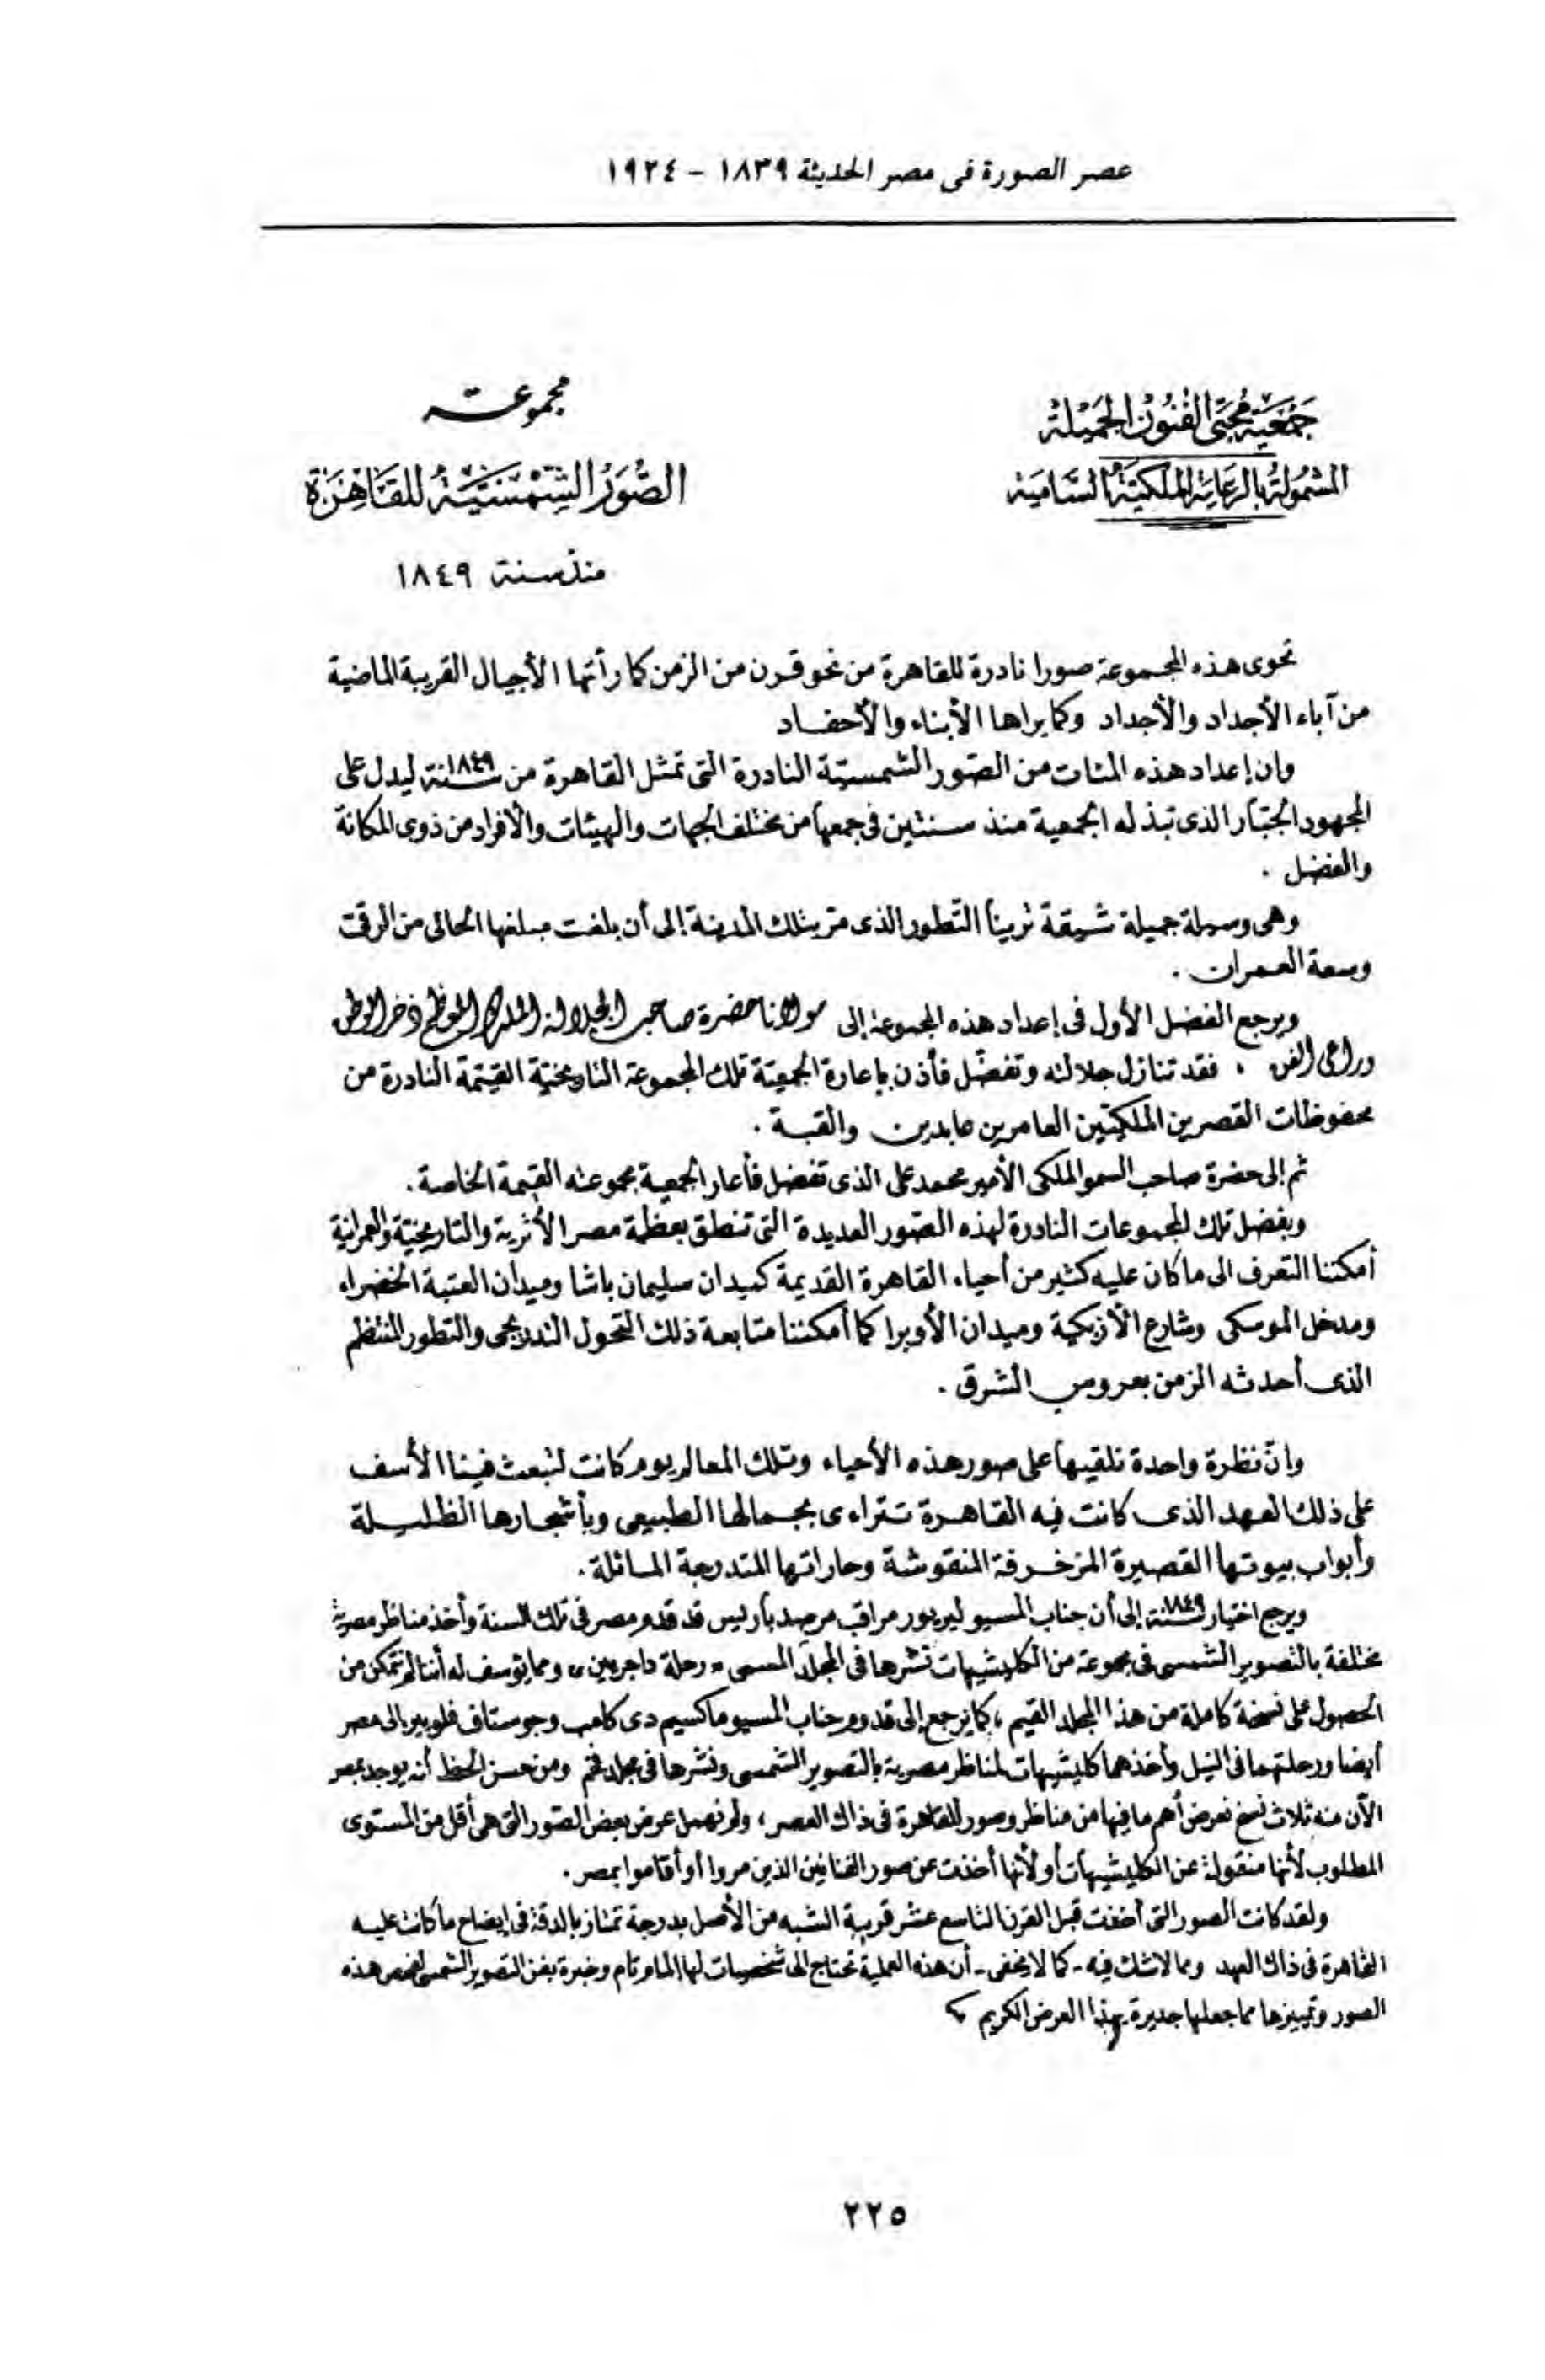 عصر الصورة فى مصر الحديثة ١٨٣٩ - ١٩٢٤
جَمْعِيَّة مُحِبِّى الفُنُوْن الجَمِيْلَة
المشمُولة بالرعَاية الملكيَّة السَّامية
مجموعة
الصُّوَر الشَّمْسِيَّة للقَاهِرَة
منذ سنة ١٨٤٩
تحوى هذه المجموعة صورا نادرة للقاهرة من نحو قرن من الزمن كما رأتها الأجيال القريبة الماضية
من آباء الأجداد والأجداد وكما يراها الأبناء والأحفاد
وان إعداد هذه المئات من الصور الشمسية النادرة التى تمثل القاهرة من سنة ١٨٤٩ ليدل على
المجهود الجبّار الذى تبذله الجمعية منذ سنتين فى جمعها من مختلف الجهات والهيئات والأفراد من ذوى المكانة
والفضل .
وهى وسيلة جميلة شيقة ترينا التطور الذى مر بتلك المدينة إلى أن بلغت مبلغها الحالى من الرقى
وسعة العمران .
ويرجع الفضل الأول فى إعداد هذه المجموعة إلى مولانا حضرة صاحب الجلالة الملك المعظم ذخر الوطن
وراعى الفن ، فقد تنازل جلالته وتفضّل فأذن بإعارة الجمعيّة تلك المجموعة التاريخيّة القيّمة النادرة من
محفوظات القصرين الملكيّين العامرين عابدين والقبة .
ثم إلى حضرة صاحب السمو الملكى الأمير محمد على الذى تفضل فأعار الجمعية مجموعته القيمة الخاصة .
وبفضل تلك المجموعات النادرة لهذه الصّور العديدة التى تنطق بعظمة مصر الأثرية والتاريخيّة والعمرانية
أمكننا التعرف الى ما كان عليه كثير من أحياء القاهرة القديمة كميدان سليمان باشا وميدان العتبة الخضراء
ومدخل الموسكى وشارع الأزبكية وميدان الأوبرا كما أمكننا متابعة ذلك التحول التدريجى والتطور المنتظم
الذى أحدثه الزمن بعروس الشرق .
وانّ نظرة واحدة نلقيها على صور هذه الأحياء وتلك المعالم يوم كانت لتبعث فينا الأسف
على ذلك العهد الذى كانت فيه القاهرة تتراءى بجمالها الطبيعى وبأشجارها الظليلة
وأبواب بيوتها القصيرة المزخرفة المنقوشة وحاراتها المتدرجة المائلة .
ويرجع اختيار سنة ١٨٤٩ إلى أن جناب المسيو ليربور مراقب مرصد باريس قد قدم مصر فى تلك السنة وأخذ مناظر مصرية
مختلفة بالتصوير الشمسى فى مجموعة من الكليشيهات نشرها فى المجلد المسمى « رحلة داجريين » ومما يؤسف له أننا لم نتمكن من
الحصول على نسخة كاملة من هذا المجلد القيم ، كما يرجع إلى قدوم جناب المسيو ماكسيم دى كامب وجوستاف فلوبير الى مصر
أيضا ورحلتهما فى النيل وأخذهما كليشيهات لمناظر مصرية بالتصوير الشمسى ونشرها فى مجلد فخم ومن حسن الحظ أنه يوجد بمصر
الآن منه ثلاث نسخ نعرض أهم ما فيها من مناظر وصور للقاهرة فى ذاك العصر ، ولم نهمل عرض بعض الصور التى هى أقل من المستوى
المطلوب لأنها منقولة عن الكليشيهات أو لأنها أخذت عن صور الفنانين الذين مروا أو أقاموا بمصر .
ولقد كانت الصور التى أخذت قبل القرن التاسع عشر قريبة الشبه من الأصل بدرجة تمتاز بالدقة فى إيضاح ما كانت عليه
القاهرة فى ذاك العهد ومما لا شك فيه - كما لا يخفى - أن هذه العملية تحتاج الى شخصيات لها إلمام تام وخبرة بفن التصوير الشمسى لفحص هذه
الصور وتمييزها مما جعلها جديرة بهذا العرض الكريم
٢٢٥